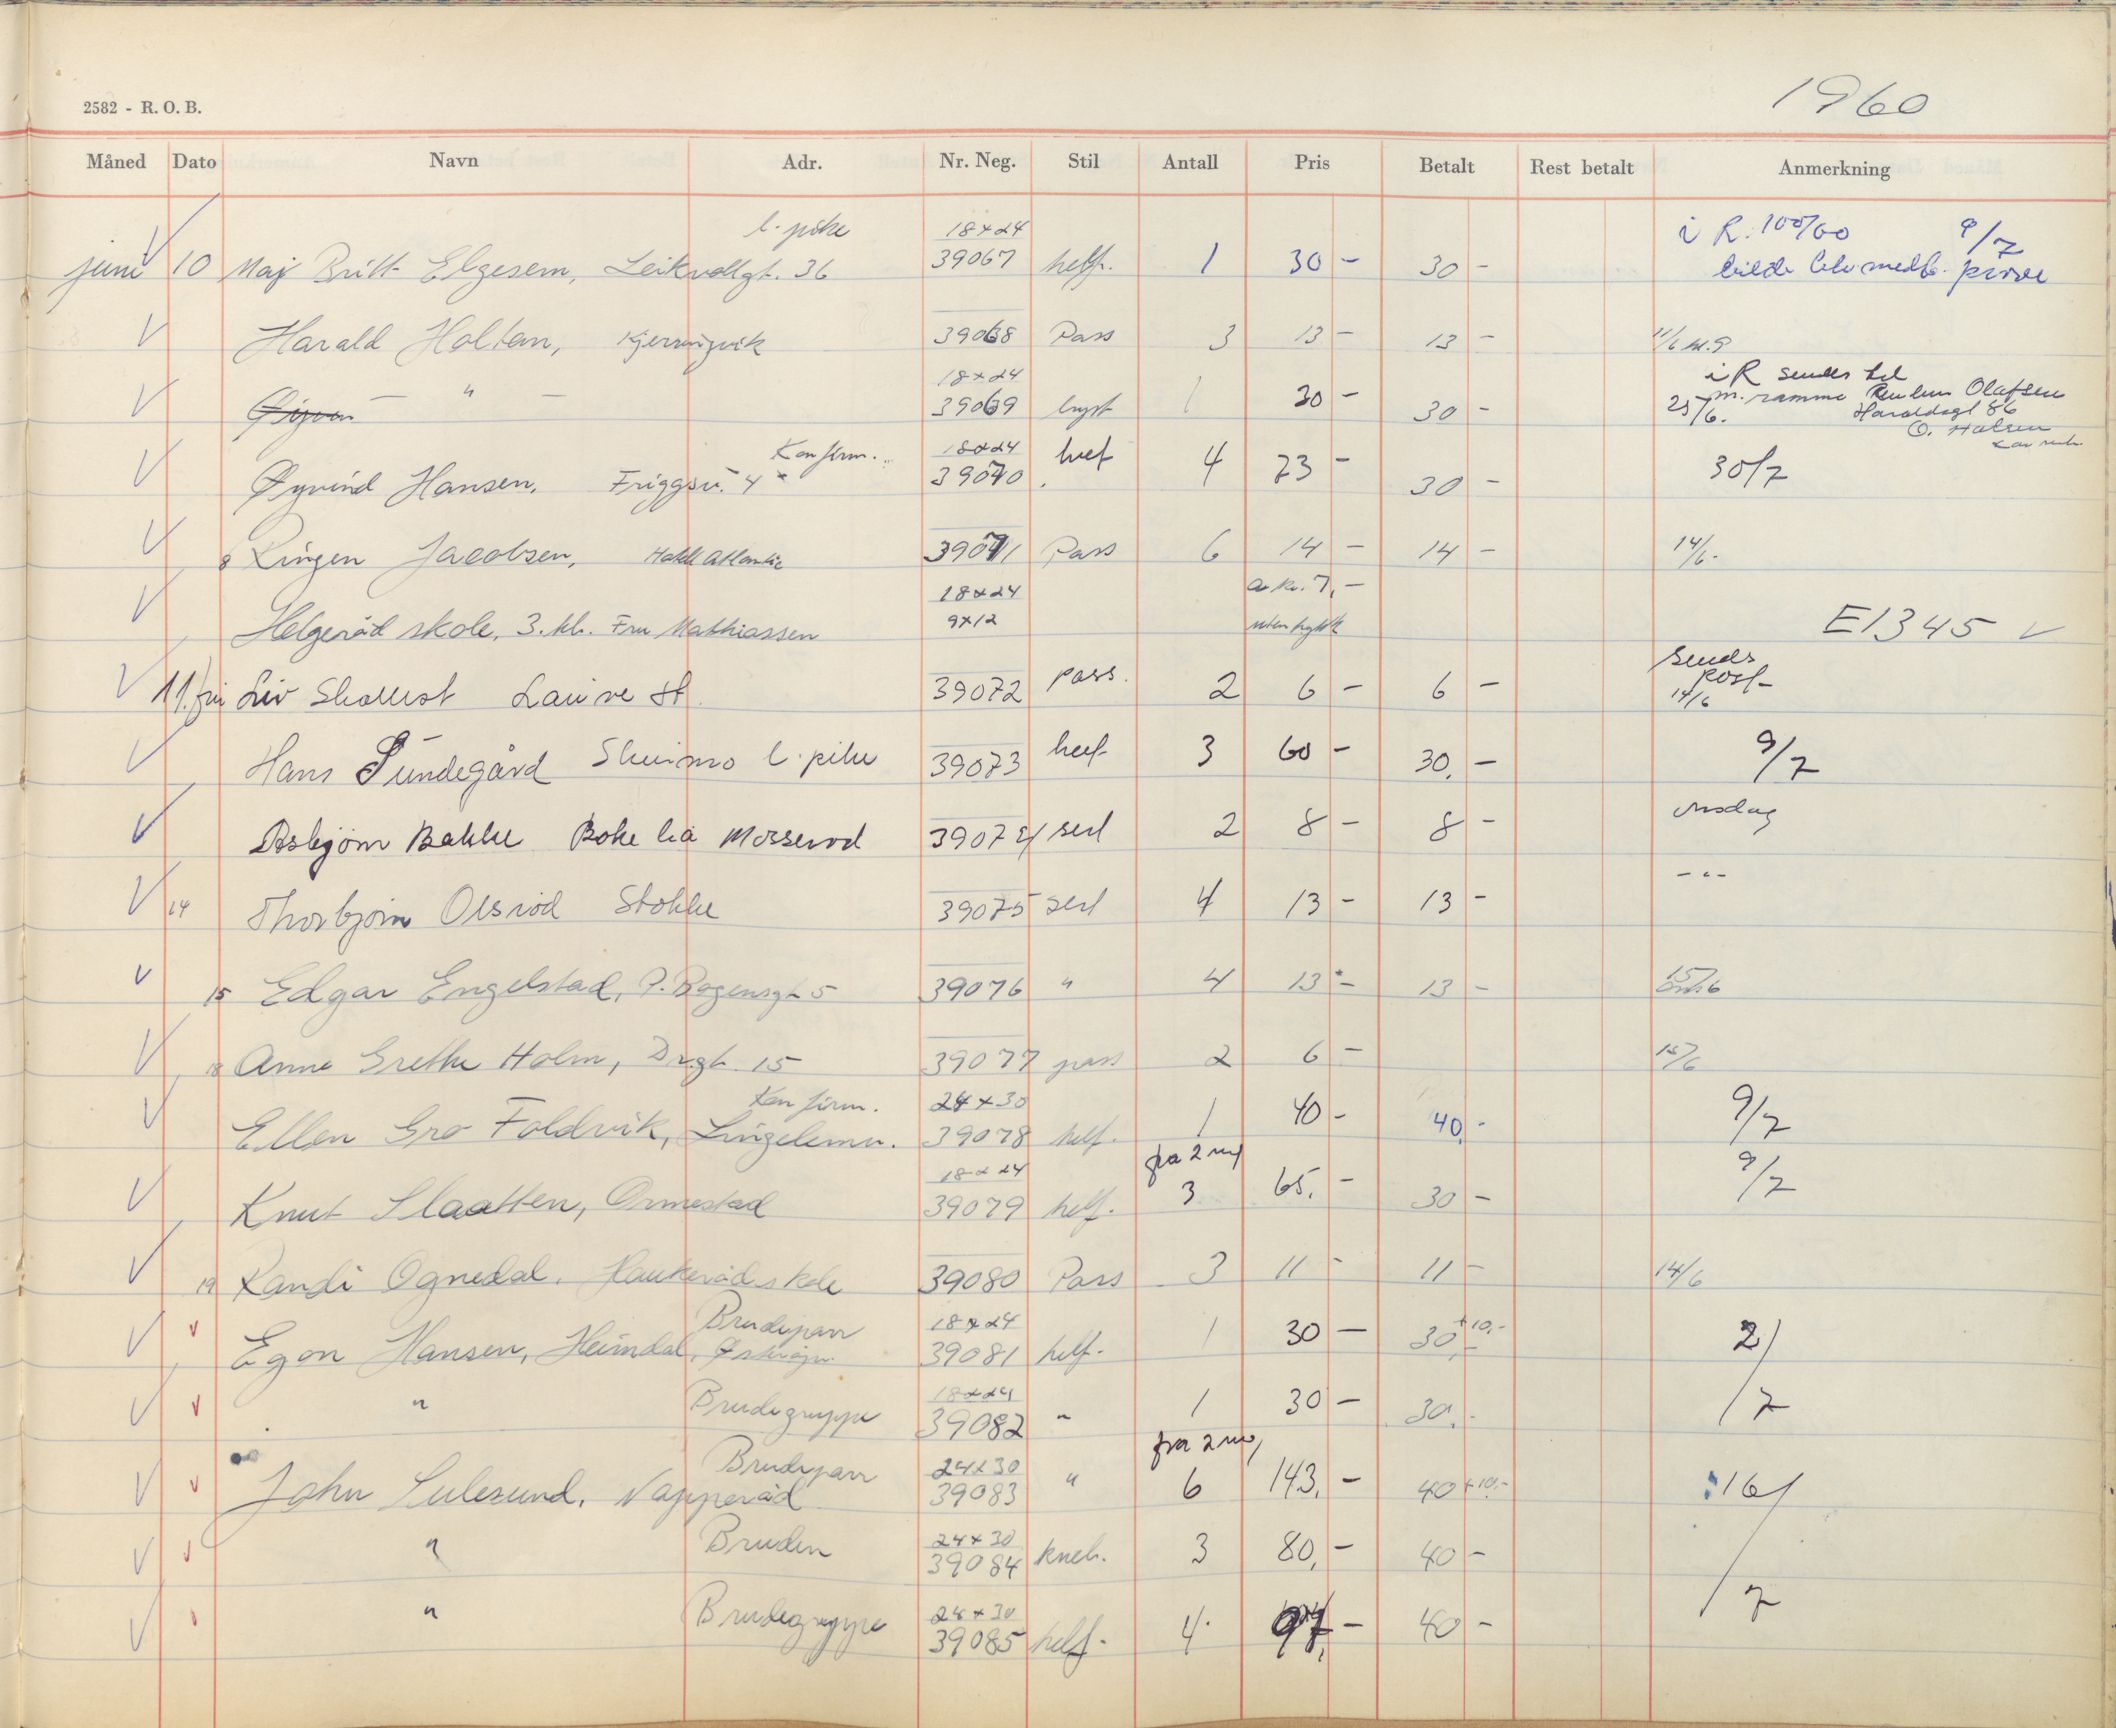 1960
2582 - R. O. B.
Måned Dato Navn Adr. Nr. Neg. Stil Antall Pris Betalt Rest betalt Anmerkning
l. pike 18x24 i R. 100/60 9/7
juni 10 Maj Britt Elgesem, Leikvollgt. 36 39067 helf. 1 30 - 30 - prøve
Harald Holtan, Kjerringvik 39068 Pass 3 13 - 13 - 11/6 kl. 9
18x24 i R sendes til
Øyvin — " — 39069 bryst 1 30 - 30 - 25/6. m. ramme Olafsen
Haraldsgt 86
Konfirm. 18x24
Øyvind Hansen, Friggsv. 4 39070 helf 4 73 - 30 - 30/7
8 Ringen Jacobsen, Hotell Atlantic 39071 Pass 6 14 - 14 - 14/6.
18x24 a kr. 7,-
Helgeråd skole, 3. kl. Fru Mathiassen 9x12 E1345 V
sendes
11. juni Liv Skollest Lauve st. 39072 pass. 2 6 - 6 - post
14/6
Hans Sundegård l. pike 39073 helf 3 60 - 30,- 9/7
Asbjørn Bakke Bøkelia Mosserød 39074 serl 2 8 - 8 - onsdag
14 Thorbjørn Olsrød Stokke 39075 serl 4 13 - 13 - - " -
15 Edgar Engelstad, P. Bogensgt. 5 39076 " 4 13 - 13 - 15/6
18 Anne Grethe Holm, Drgt. 15 39077 pass 2 6 - 15/6
Konfirm. 24x30
Ellen Gro Foldvik, Lingelemv. 39078 helf. 1 40 - 40,- 9/7
18x24 fra 2 neg
Knut Slaatten, Ormestad 39079 helf. 3 65,- 30 - 9/7
19 Randi Ognedal, Haukerød skole 39080 Pass 3 11 - 11 - 14/6
Brudepar 18x24
Egon Hansen, Heimdal, 39081 helf. 1 30 - 30,- +10,- 2/
18x24
" Brudegruppe 39082 " 1 30 - 30,- /7
Brudepar 24x30 fra 2 neg
John Sulesund, Napperød 39083 " 6 143,- 40 +10,- 16/
24x30
" Bruden 39084 kneb. 3 80,- 40 -
24x30 /7
" Brudegruppe 39085 helf. 4. 97,- 40 -